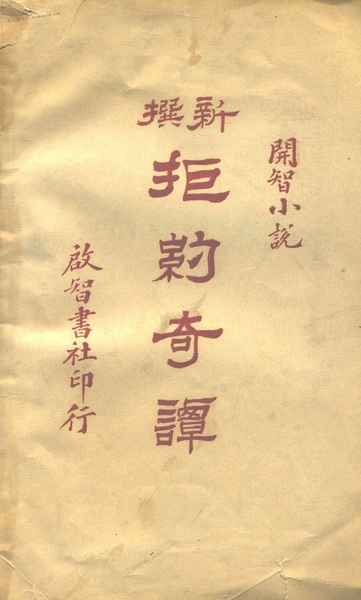 開智小說
新撰
拒約奇譚
啟智書社印行